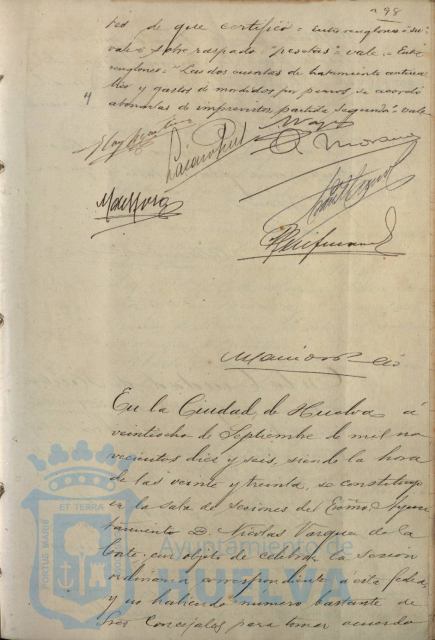 98
res de que certifico = Entre renglones = su =
vale = sobre raspado = "pesetas" = vale = Entre
renglones = "Las dos cuentas de tratamiento antirra
bico y gastos de mordidos por perros se acordó
abonarlas de imprevistos partida segunda" = vale
En la Ciudad de Huelva á
veintiocho de Septiembre de mil no
vecientos diez y seis, siendo la hora
de las veinte y treinta, se constituyó
en la sala de sesiones del Excmo. Ayun
tamiento D. Nicolas Vazquez de la
Corte con objeto de celebrar la sesion
ordinaria correspondiente á esta fecha,
y no habiendo numero bastante de
Sres Concejales para tomar acuerdo
PORTUS MARIS
ET TERRAE
Ayuntamiento de
HUELVA